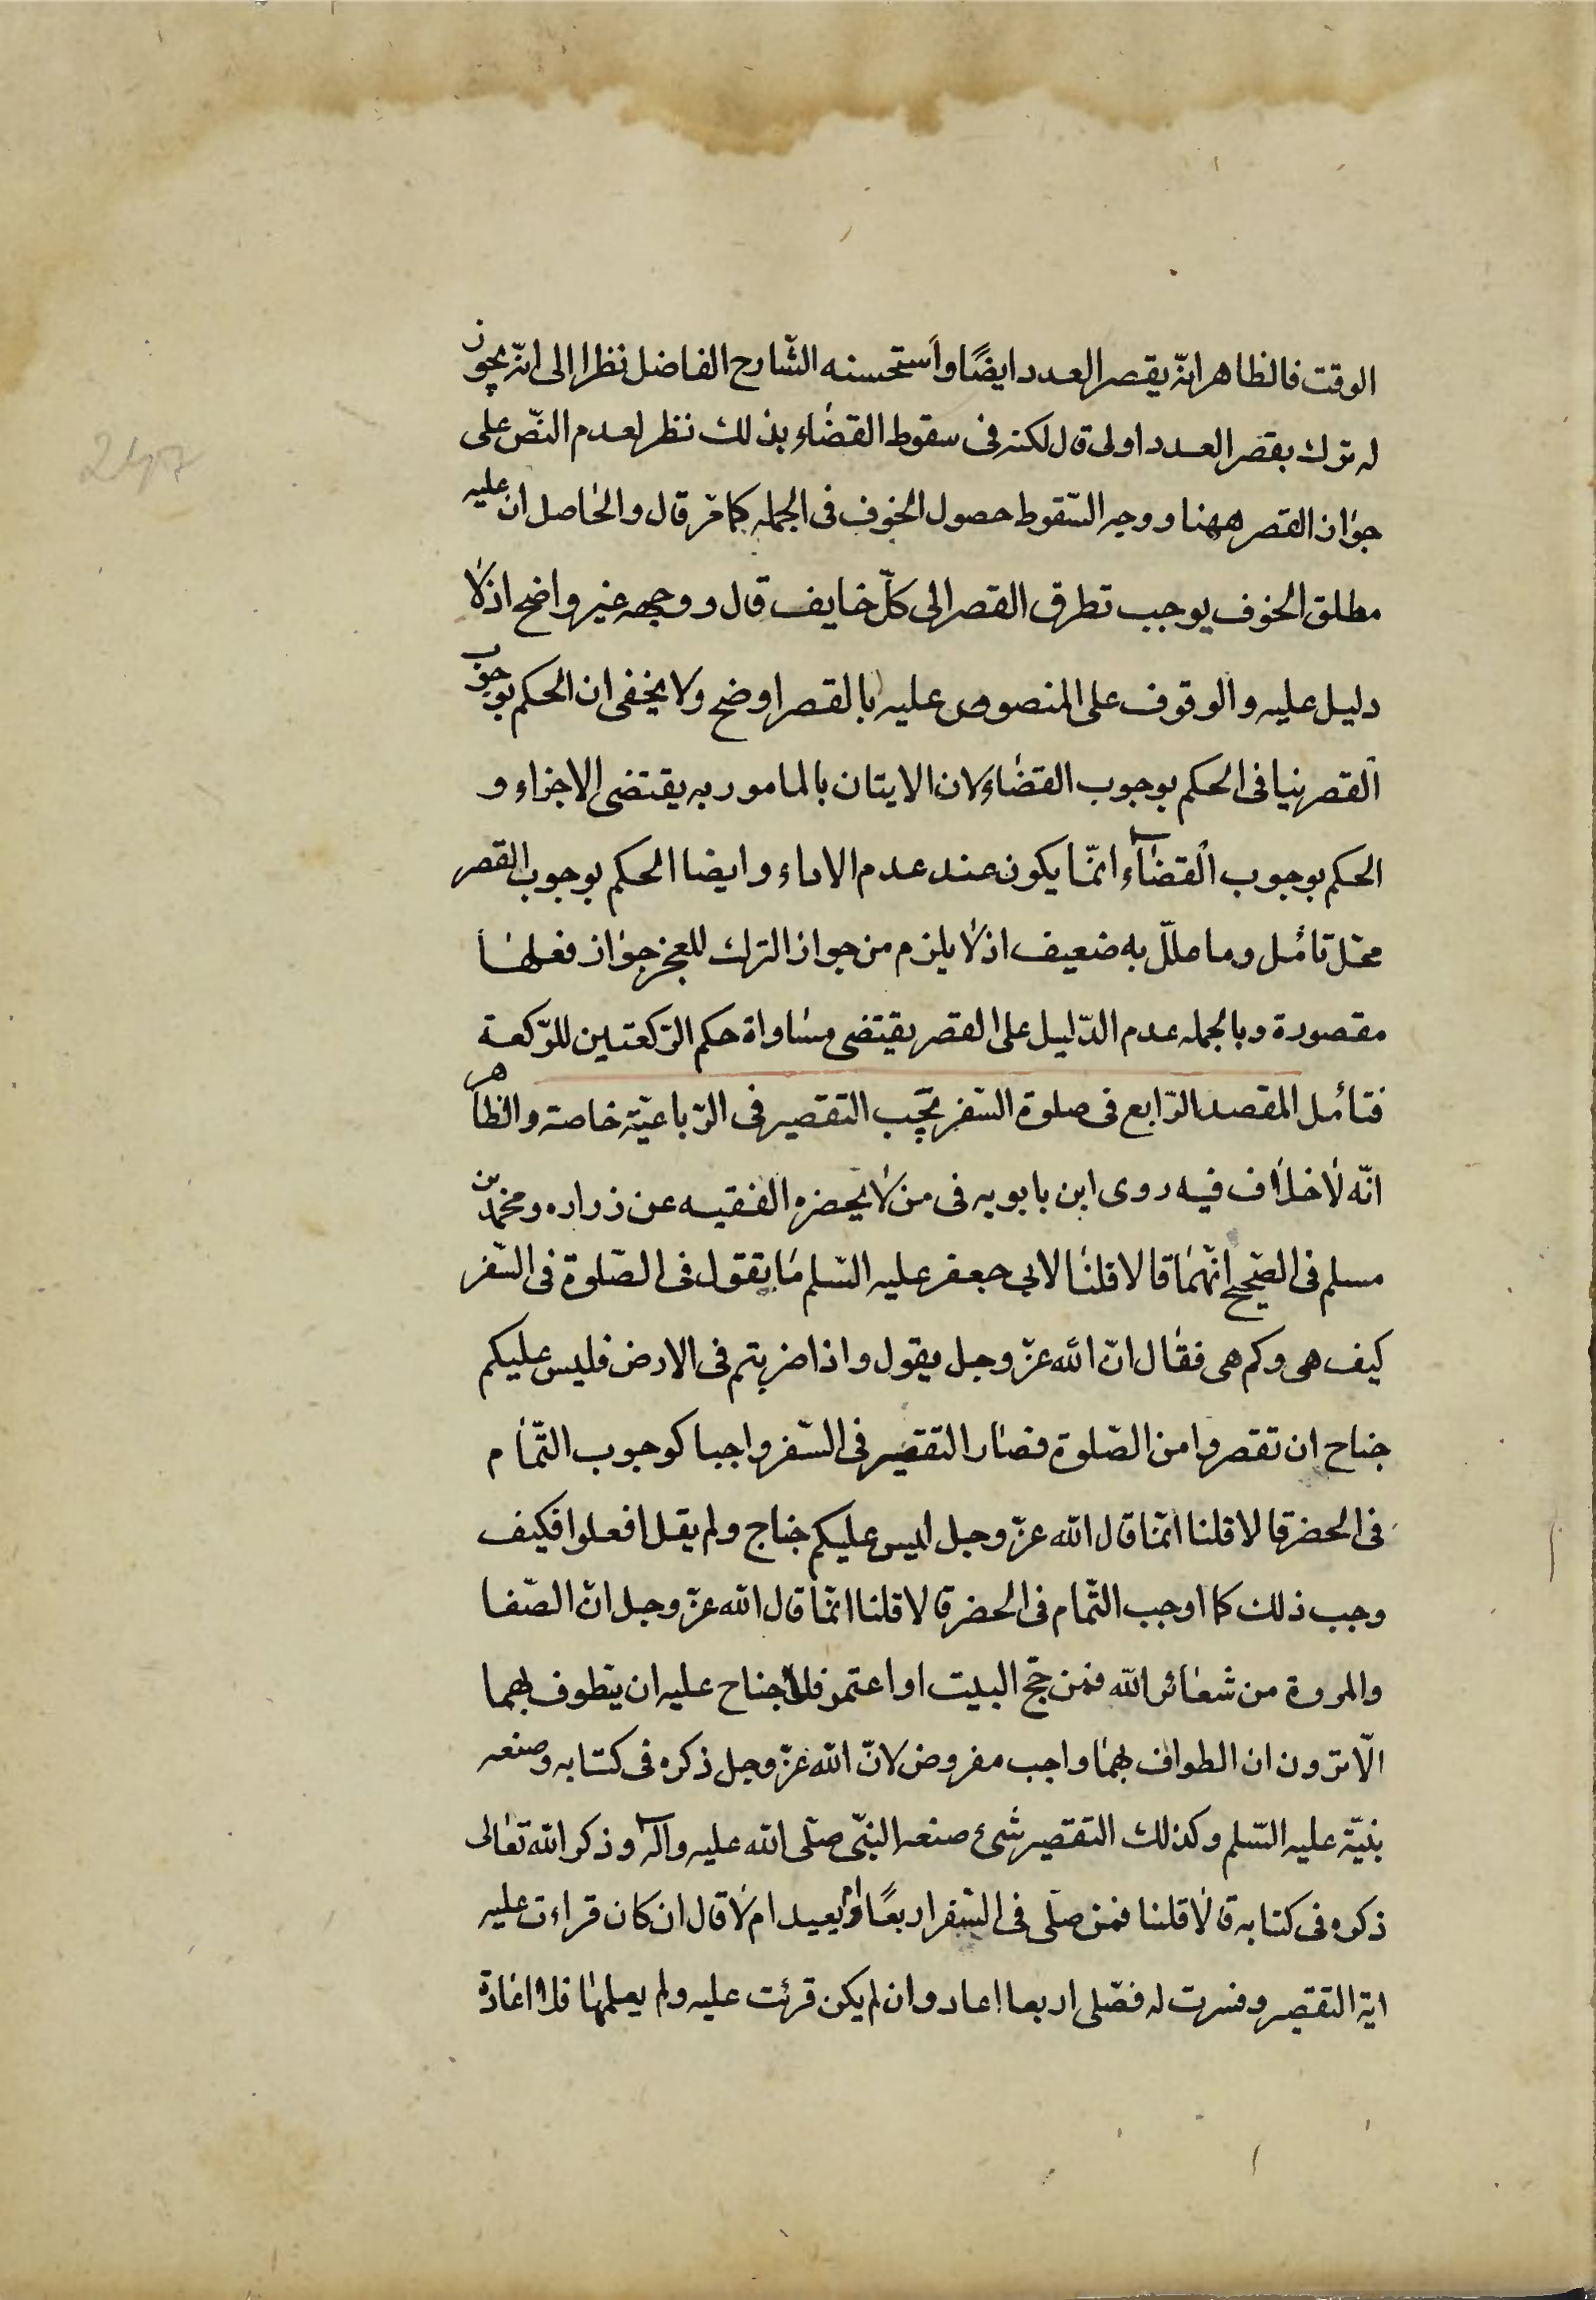 الوقت فالظاهر انّه يقصر العدد ايضًا واستحسنه الشّارح الفاضل نظرا الى انّه يجوز
له ترك بقصر العدد اولى قال لكنه فى سقوط القضاء بذلك نظر لعدم النصّ على
جواز القصر ههنا ووجه السّقوط حصول الخوف فى الجمله كما مرّ قال والحاصل ان عليه
مطلق الخوف يوجب تطرق القصر الى كلّ خايف قال ووجهه غير واضح اذ لا
دليل عليه والوقوف على المنصوص عليه بالقصر اوضح ولا يخفى ان الحكم بوجوب
القصر ينافى الحكم بوجوب القضاء لان الايتان بالمامور به يقتضى الاجزاء و
الحكم بوجوب القضاء انّما يكون عند عدم الاداء وايضا الحكم بوجوب القصر
محلّ تامّل وما علّل به ضعيف اذ لا يلزم من جواز الترك للعجز جواز فعلها
مقصورة وبالجمله عدم الدّليل على القصر يقتضى مساواة حكم الرّكعتين للرّكعة
فتأمل المقصد الرّابع فى صلوة السّفر تجب التقصير فى الرّباعيّة خاصة والظاهر
انّه لا خلاف فيه روى ابن بابويه فى من لا يحضره الفقيه عن زراره ومحمّد بن
مسلم فى الصّحيح انّهما قالا قلنا لابى جعفر عليه السّلم ما تقول فى الصّلوة فى السّفر
كيف هى وكم هى فقال انّ الله عزّ وجل يقول واذا ضربتم فى الارض فليس عليكم
جناح ان تقصروا من الصّلوة فصار التقصير فى السّفر واجبا كوجوب التّمام
فى الحضر قالا قلنا انّما قال الله عزّ وجل ليس عليكم جناح ولم يقل افعلوا فكيف
وجب ذلك كما اوجب التّمام فى الحضر قالا قلنا انّما قال الله عزّ وجل انّ الصّفا
والمروة من شعائر الله فمن حجّ البيت او اعتمر فلا جناح عليه ان يتطوف بهما
الّا ترون ان الطواف بهما واجب مفروض لانّ الله عزّ وجل ذكره فى كتابه وصنعه
بنيّه عليه السّلم وكذلك التقصير شىء صنعه النبىّ صلّى الله عليه وآله وذكر الله تعالى
ذكره فى كتابه قالا قلنا فمن صلّى فى السّفر اربعًا ايعيد ام لا قال ان كان قراءت عليه
اية التقصير وفسرت له فصّلى اربعا اعاد وان لم يكن قرئت عليه ولم يعلمها فلا اعادة